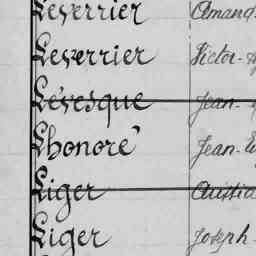 Leverrier Amand
Leverrier Victor-
Lévesque Jean-
Lhonoré Jean-
Liger
Liger Joseph-